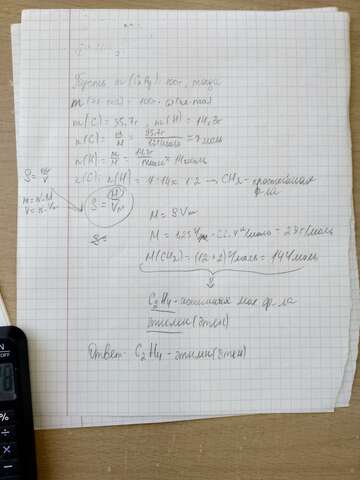 Пусть m(CxHy) = 100г, тогда
m(эл-та) = 100г · ω(эл-та)
m(C) = 85,7г, m(H) = 14,3г
n(C) = m/M = 85,7г/12г/моль = 7 моль
n(H) = m/M = 14,3г/1г/моль = 14 моль
n(C) : n(H) = 7 : 14 = 1 : 2 → CH2 - простейшая
ф-ла
ρ = m/V
m = n·M
V = n·Vm
ρ = M/Vm
M = ρVm
M = 1,25 г/дм³ · 22,4 л/моль = 28 г/моль
M(CH2) = (12+2) г/моль = 14 г/моль
C2H4 - истинная мол. ф-ла
этилен (этен)
Ответ: C2H4 - этилен (этен)
OFF
%
÷